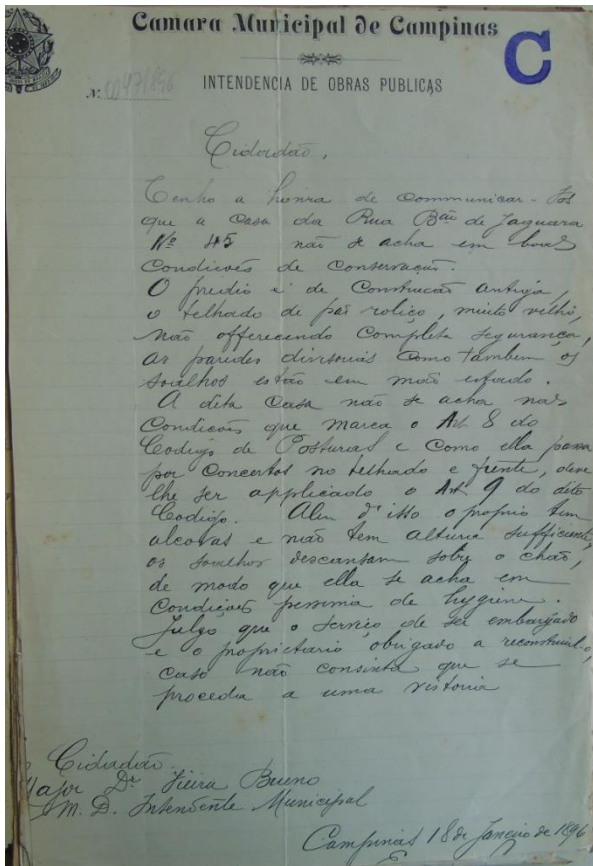 Camara Municipal de Campinas
C
INTENDENCIA DE OBRAS PUBLICAS
Nº 0047/896
Cidadão,
Tenho a honra de communicar-vos
que a casa da Rua Bão de Jaguara
Nº 45 não se acha em boas
condições de conservação.
O predio é de construcão antiga,
o telhado de páo roliço, muito velho,
não offerecendo completa segurança,
as paredes divisorias como tambem os
soalhos estão em máo estado.
A dita casa não se acha nas
condições que marca o Art 8 do
Codigo de Posturas e como ella passa
por concertos no telhado e frente, deve
lhe ser applicado o Art 9 do dito
Codigo. Alem d'isso o proprio tem
alcovas e não tem altura sufficiente,
os soalhos descansam sobre o chão,
de modo que ella se acha em
condições pessima de hygiene.
Julgo que o serviço deve ser embargado
e o proprietario obrigado a reconstruil-o,
caso não consinta que se
proceda a uma vistoria
Cidadão
Major Dr Vieira Bueno
M. D. Intendente Municipal
Campinas 18 de Janeiro de 1896